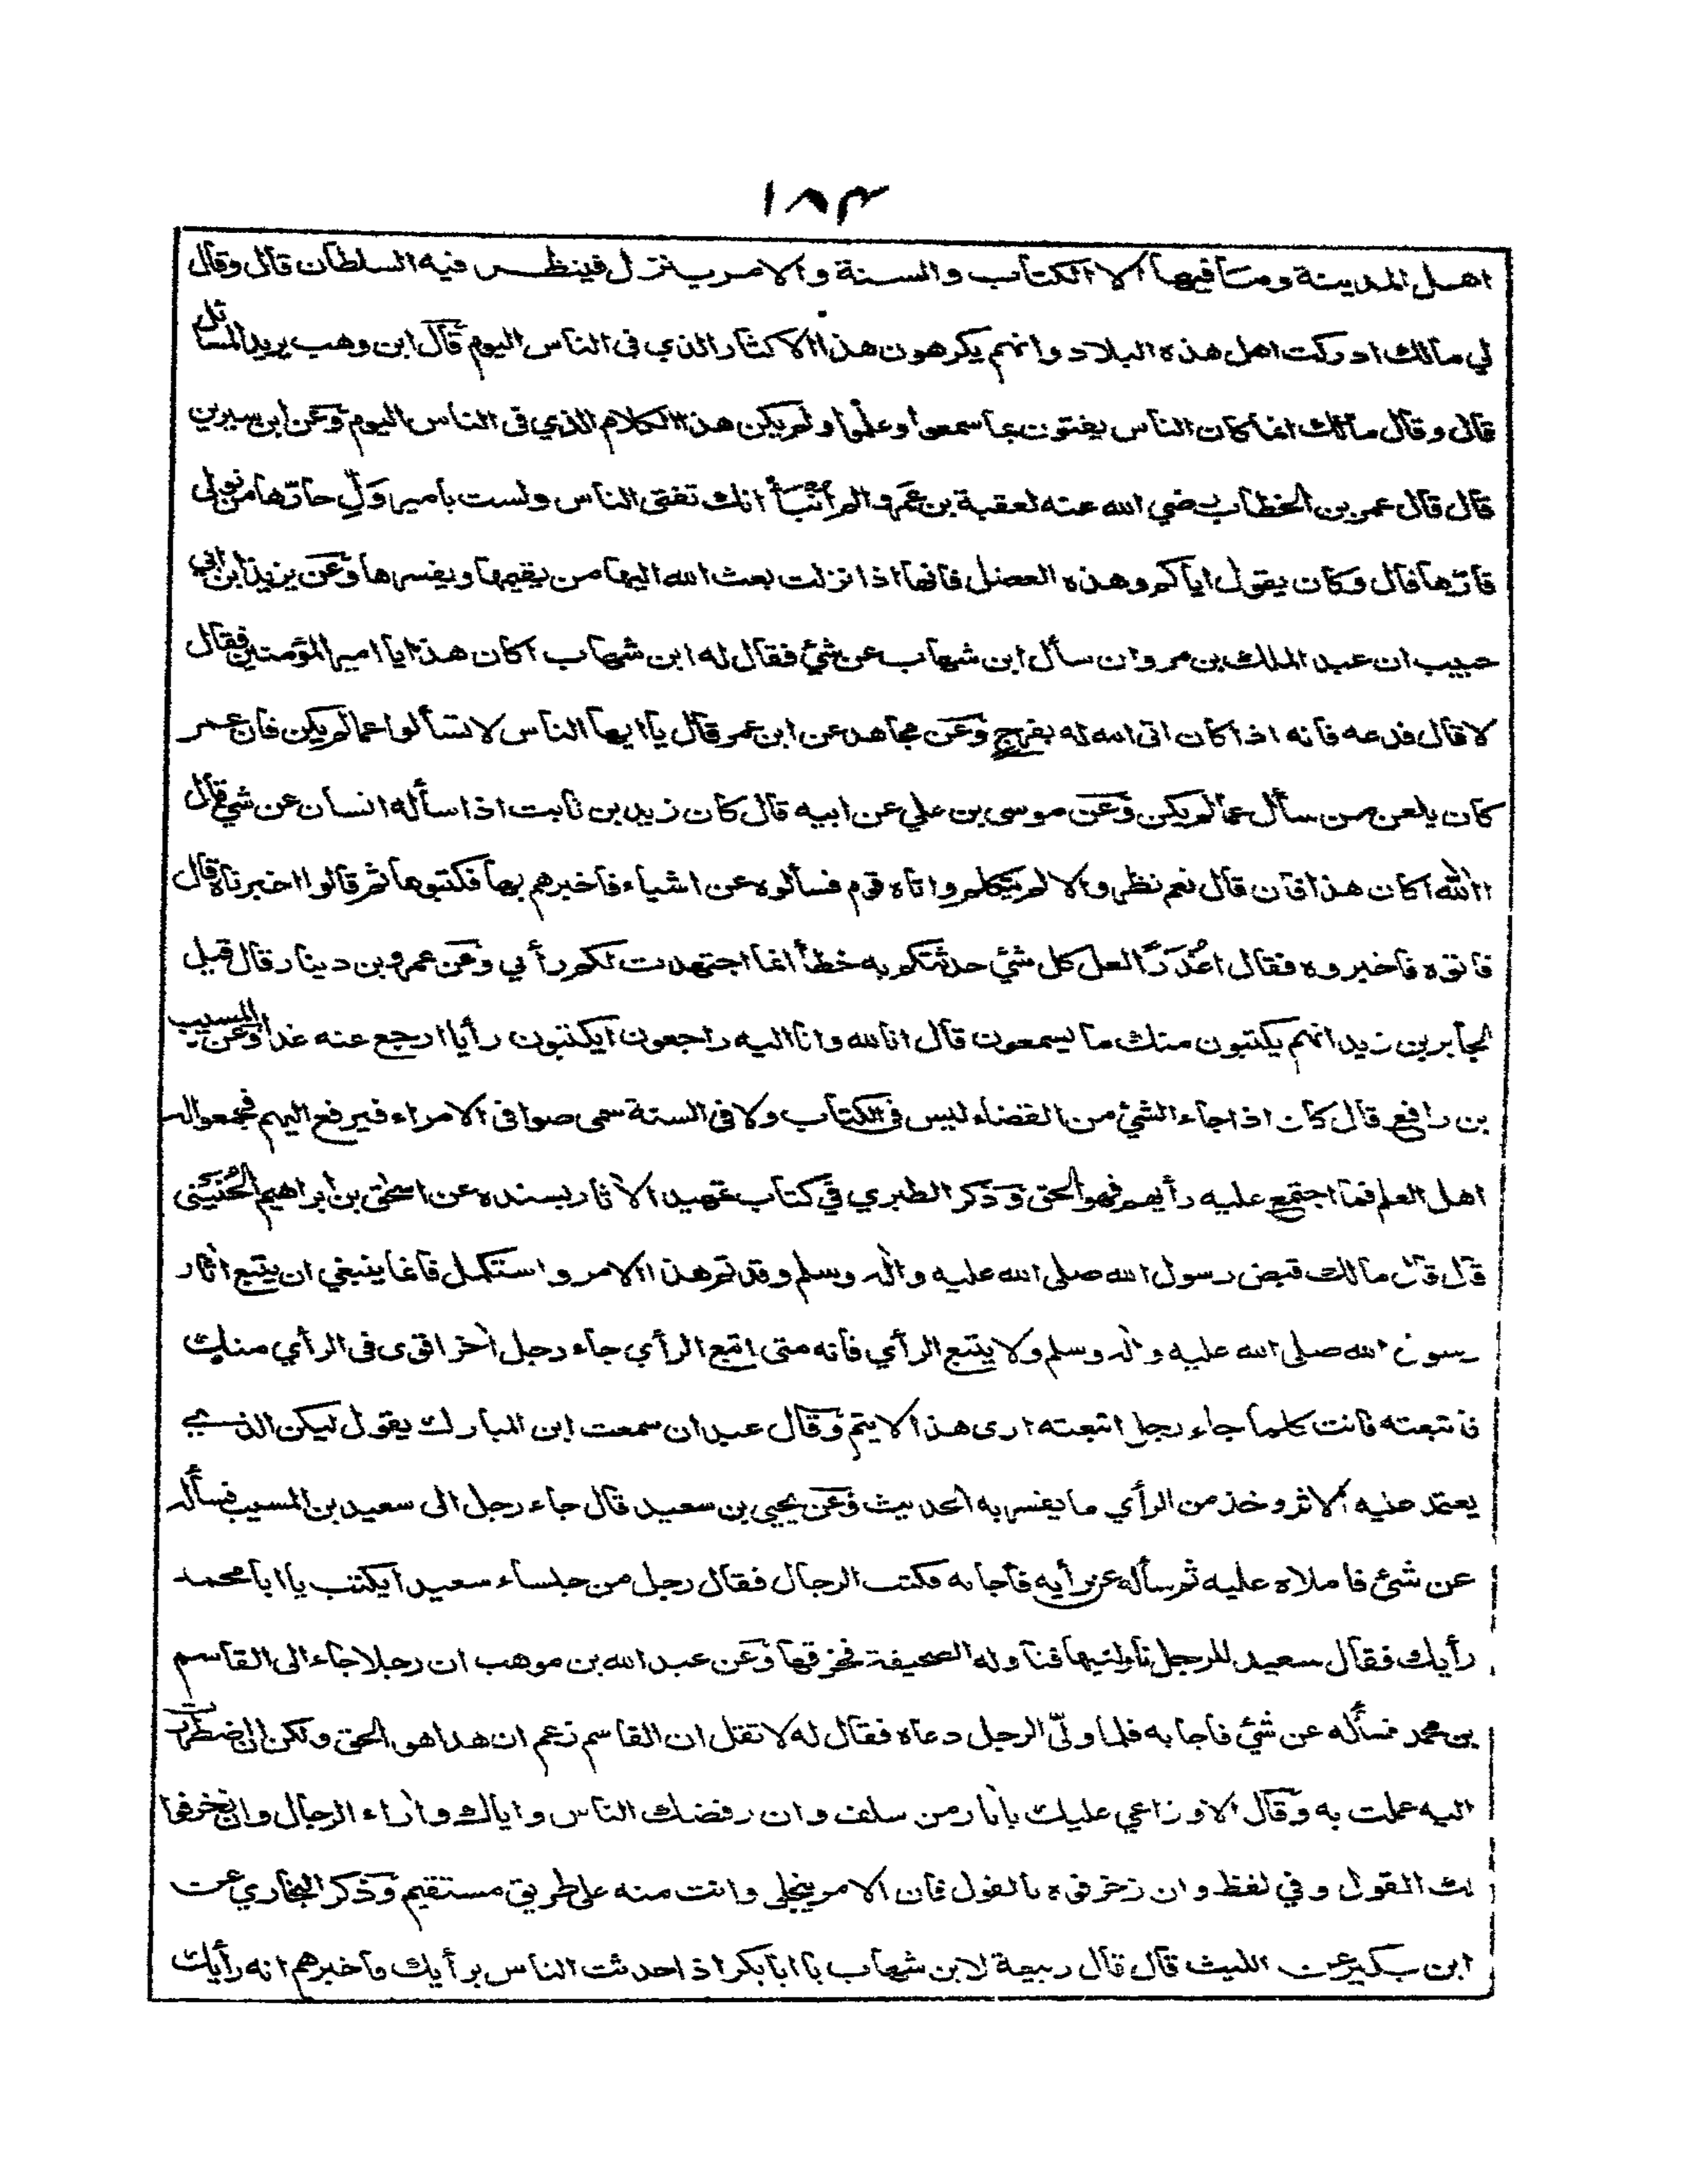 ١٨٣
اهل المدينة وما فيها الا الكتاب والسنة والامر ينزل فينظر فيه السلطان قال وقال
لي مالك ادركت اهل هذه البلاد وانهم يكرهون هذا الاكثار الذي فى الناس اليوم قال ابن وهب يريد المسائل
قال وقال مالك انما كان الناس يفتون بما سمعوا وعلموا ولم يكن هذا الكلام الذي فى الناس اليوم وعن ابن سيرين
قال قال عمر بن الخطاب رضي الله عنه لعقبة بن عمرو الم أنبأ انك تفتى الناس ولست بامير وَلِّ حارّها من تولى
قارّها قال وكان يقول اياكم وهذه العضل فانها اذا نزلت بعث الله اليها من يقيمها ويفسرها وعن يزيد ابن ابي
حبيب ان عبد الملك بن مروان سأل ابن شهاب عن شئ فقال له ابن شهاب اكان هذا يا امير المؤمنين فقال
لا قال فدعه فانه اذا كان اتى الله له بفرج وعن مجاهد عن ابن عمر قال يا ايها الناس لا تسألوا عما لم يكن فان عمر
كان يلعن من سأل عما لم يكن وعن موسى بن علي عن ابيه قال كان زيد بن ثابت اذا سأله انسان عن شئ قال
االله اكان هذا فان قال نعم نظر والا لم يتكلم واتاه قوم فسألوه عن اشياء فاخبرهم بها فكتبوها ثم قالوا اخبرناه قال
فاتوه فاخبروه فقال اعُذرًا لعل كل شئ حدثتكم به خطأ انما اجتهدت لكم رأيي وعن عمرو بن دينار قال قيل
لجابر بن زيد انهم يكتبون منك ما يسمعون قال انا لله وانا اليه راجعون ايكتبون رأيا ارجع عنه غدا وعن المسيب
بن رافع قال كان اذا جاء الشئ من القضاء ليس فى الكتاب ولا فى السنة سمى صوافى الامراء فيرفع اليهم فجمعوا له
اهل العلم فما اجتمع عليه رأيهم فهو الحق وذكر الطبري في كتاب تهذيب الاثار بسنده عن اسحق بن ابراهيم الحُنَينى
قال قال مالك قبض رسول الله صلى الله عليه واٰله وسلم وقد تم هذا الامر واستكمل فانما ينبغي ان يتبع اٰثار
رسول الله صلى الله عليه واٰله وسلم ولا يتبع الرأي فانه متى اتبع الرأي جاء رجل اٰخر اقوى فى الرأي منك
فاتبعته فانت كلما جاء رجل اتبعته ارى هذا لا يتم وقال عبدان سمعت ابن المبارك يقول ليكن الذي
يعتمد عليه الاثر وخذ من الرأي ما يفسر به الحديث وعن يحيى بن سعيد قال جاء رجل الى سعيد بن المسيب فسأله
عن شئ فاملاه عليه ثم سأله عن رأيه فاجابه فكتب الرجال فقال رجل من جلساء سعيد ايكتب يا ابا محمد
رأيك فقال سعيد للرجل ناولنيها فناوله الصحيفة فخرقها وعن عبد الله بن موهب ان رجلا جاء الى القاسم
بن محمد فسأله عن شئ فاجابه فلما ولّى الرجل دعاه فقال له لا تقل ان القاسم زعم ان هذا هو الحق ولكن ان اضطررت
اليه عملت به وقال الاوزاعي عليك باٰثار من سلف وان رفضك الناس واياك واٰراء الرجال وان زخرفوا
لك القول وفي لفظ وان زخرفوه بالقول فان الامر ينجلى وانت منه على طريق مستقيم وذكر البخاري عن
ابن بكير عن الليث قال قال ربيعة لابن شهاب يا ابا بكر اذا حدثت الناس برأيك فاخبرهم انه رأيك